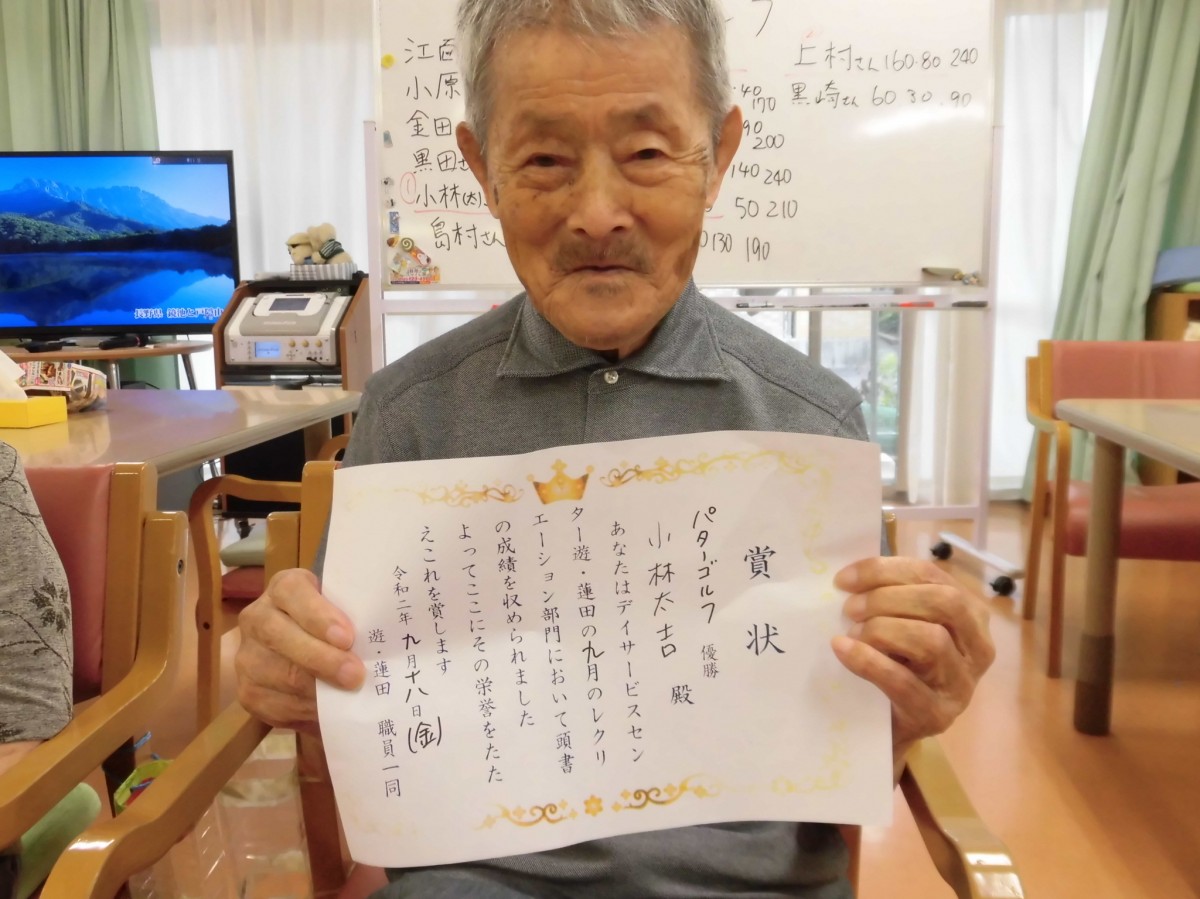 フ
江面
小原
金田
黒田さ
①小林(太)
島村さん
40
170
90
200
140 240
50 210
130 190
上村さん 160・80 240
黒崎さん 60 30 90
賞状
パターゴルフ 優勝
小林太吉 殿
あなたはデイサービスセン
ター遊・蓮田の九月のレクリ
エーション部門において頭書
の成績を収められました
よってここにその栄誉をたた
えこれを賞します
令和二年九月十八日(金)
遊・蓮田 職員一同